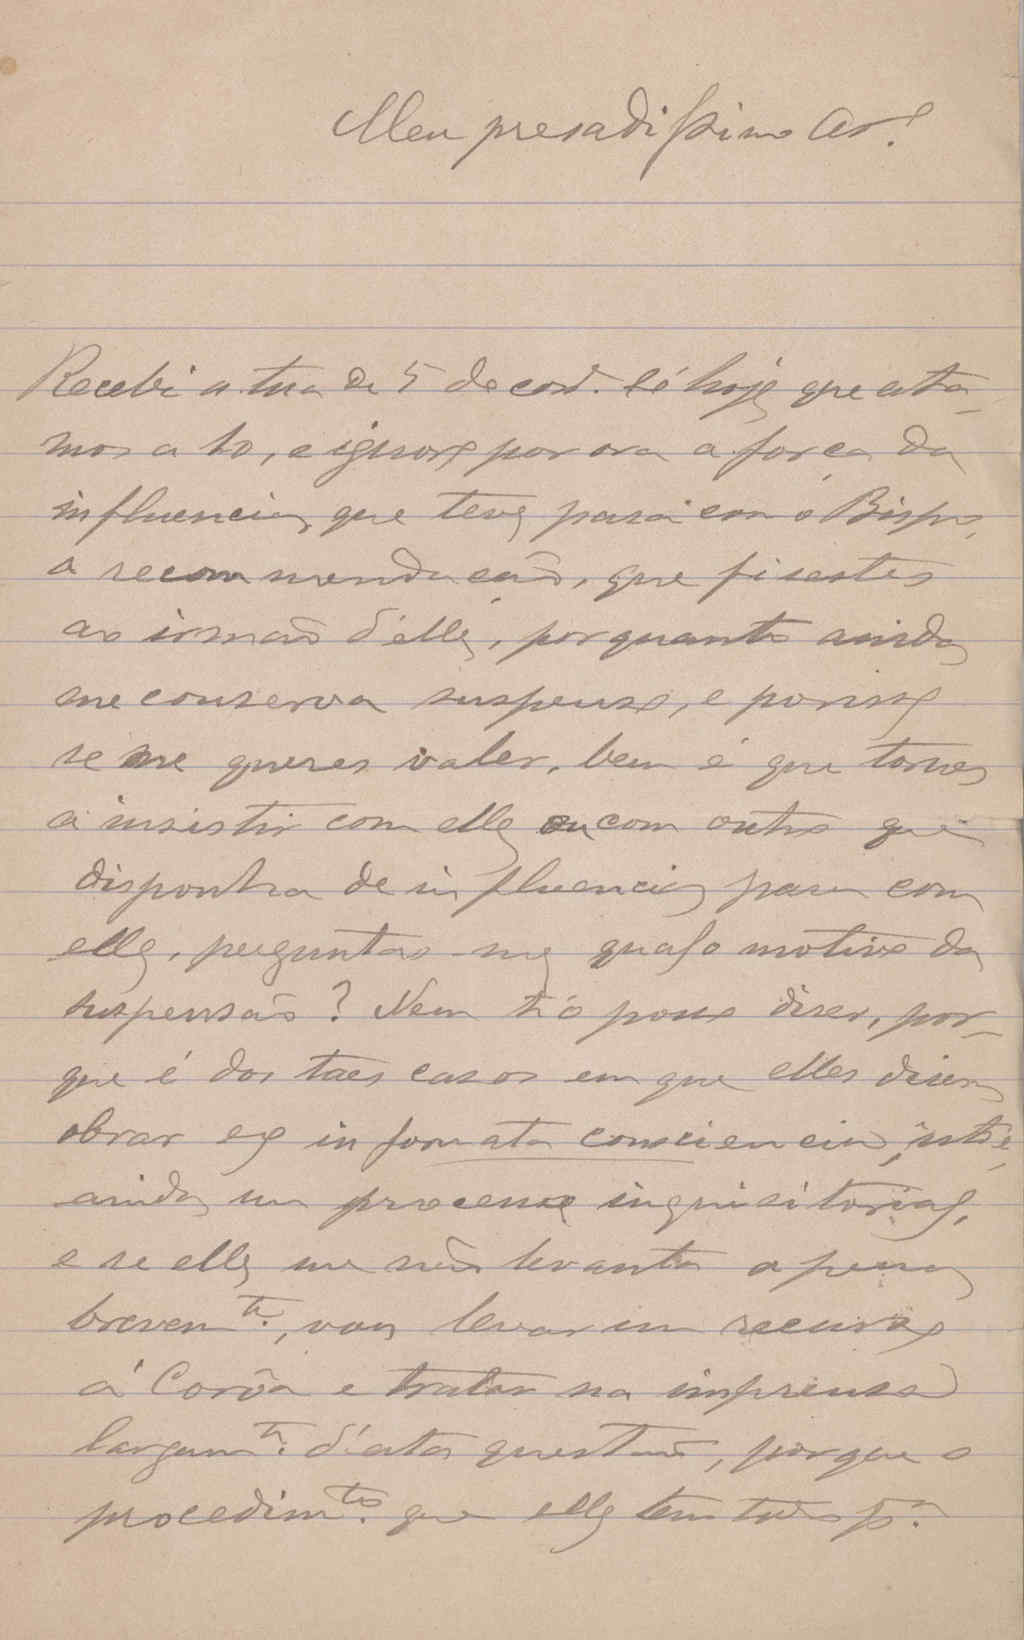 Meu presadissimo Am.º
Recebi a tua de 5 do corr. só hoje que esta-
mos a 10, e ignoro por ora a força da
influencia, que teve para com o Bispo,
a recommendação, que fisestes
ao irmão d'elle, porquanto ainda
me conserva suspenso, e porisso
se me queres valer, bem é que tornes
a insistir com elle ou com outro que
disponha de influencia para com
elle, perguntas-me qual o motivo da
suspensão? Nem t'o posso diser, por-
que é dos taes casos em que elles disem
obrar ex informata consciencia, isto é,
ainda um processo inquisitorial,
e se elle me não levanta a pena
brevem.te, vou levar um recurso
á Corôa e tratar na imprensa
largam.te d'esta questão, porque o
procedim.to que elle tem tido p.ª